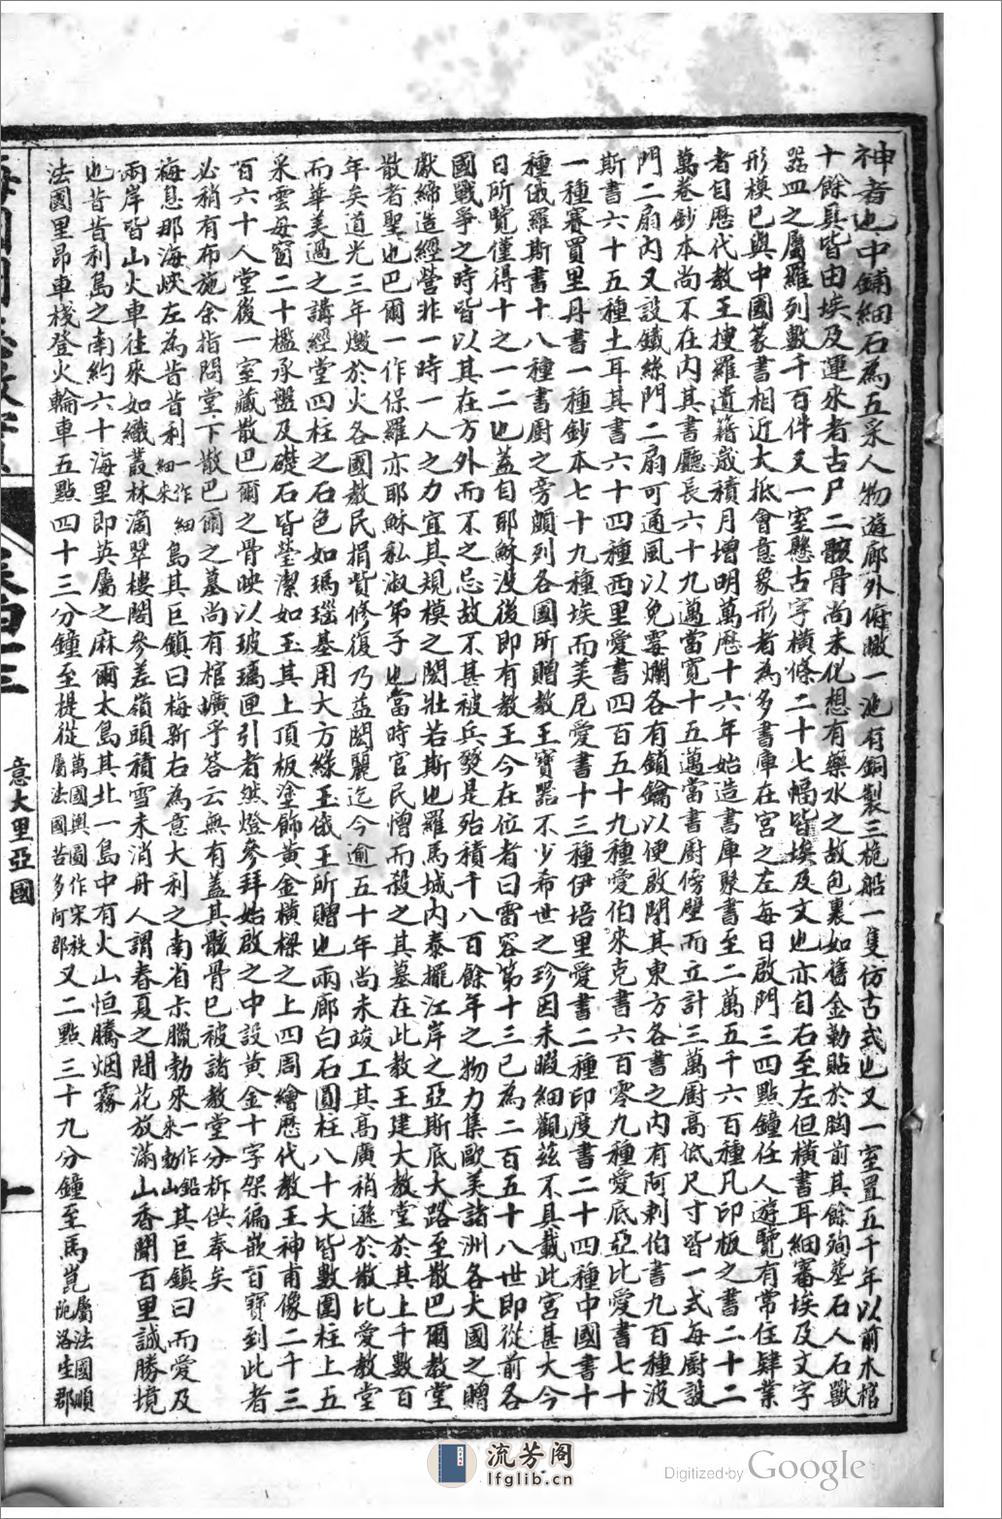 神者也中鋪細石為五采人物遊廊外俯瞰一池有銅製三桅船一隻仿古式也又一室置五千年以前木棺
十餘具皆由埃及運來者古尸二骸骨尚未化想有藥水之故包裹如舊金勒貼於胸前其餘殉墓石人石獸
器皿之屬羅列數千百件又一室懸古字橫條二十七幅皆埃及文也亦自右至左但橫書耳細審埃及文字
形模已與中國篆書相近大抵會意象形者為多書庫在宮之左每日啟門三四點鐘任人遊覽有常住肄業
者自歷代教王搜羅遺籍歲積月增明萬厯十六年始造書庫聚書至二萬五千六百種凡印板之書二十二
萬卷鈔本尚不在內其書廳長六十九邁當寬十五邁當書廚傍壁而立計三萬廚高低尺寸皆一式每廚設
門二扇內又設鐵絲門二扇可通風以免霉爛各有鎖鑰以便啟閉其東方各書之內有阿剌伯書九百種波
斯書六十五種土耳其書六十四種西里愛書四百五十九種愛伯來克書六百零九種愛底亞比愛書七十
一種賽買里丹書一種鈔本七十九種埃而美尼愛書十三種伊培里愛書二種印度書二十四種中國書十
種俄羅斯書十八種書廚之旁頗列各國所贈教王寶器不少希世之珍因未暇細觀茲不具載此宮甚大今
日所覽僅得十之一二也蓋自耶穌沒後即有教王今在位者曰雷容第十三已為二百五十八世即從前各
國戰爭之時皆以其在方外而不之忌故不甚被兵燹是殆積千八百餘年之物力集歐美諸洲各大國之贈
獻締造經營非一時一人之力宜其規模之閎壯若斯也羅馬城內泰擺江岸之亞斯底大路至散巴爾教堂
散者聖也巴爾一作保羅亦耶穌私淑弟子也當時官民憎而殺之其墓在此教王建大教堂於其上千數百
年矣道光三年燬於火各國教民捐貲修復乃益閎麗迄今逾五十年尚未竣工其高廣稍遜於散比愛教堂
而華美過之講經堂四柱之石色如瑪瑙基用大方綠玉俄王所贈也兩廊白石圓柱八十大皆數圍柱上五
采雲母窗二十檻承盤及礎石皆瑩潔如玉其上頂板塗飾黃金橫樑之上四周繪歷代教王神甫像二千三
百六十人堂後一室藏散巴爾之骨映以玻璃匣引者然燈參拜始啟之中設黃金十字架徧嵌百寶到此者
必稍有布施余指問堂下散巴爾之墓尚有棺壙乎答云無有蓋其骸骨已被諸教堂分柝供奉矣
梅息那海峽左為昔昔利一作細細來島其巨鎮曰梅新右為意大利之南省卡臘勃來一作鉛來勃山其巨鎮曰而愛及
兩岸皆山火車往來如織叢林滴翠樓閣參差嶺頭積雪未消舟人謂春夏之間花放滿山香聞百里誠勝境
也昔昔利島之南約六十海里即英屬之麻爾太島其北一島中有火山恒騰烟霧
法國里昂車棧登火輪車五點四十三分鐘至提從萬國輿圖作宋秩屬法國苦多阿郡又二點三十九分鐘至馬崑屬法國順陁洛生郡
卷四三
意大里亞國
十
流芳阁
lfglib.cn
Digitized by Google